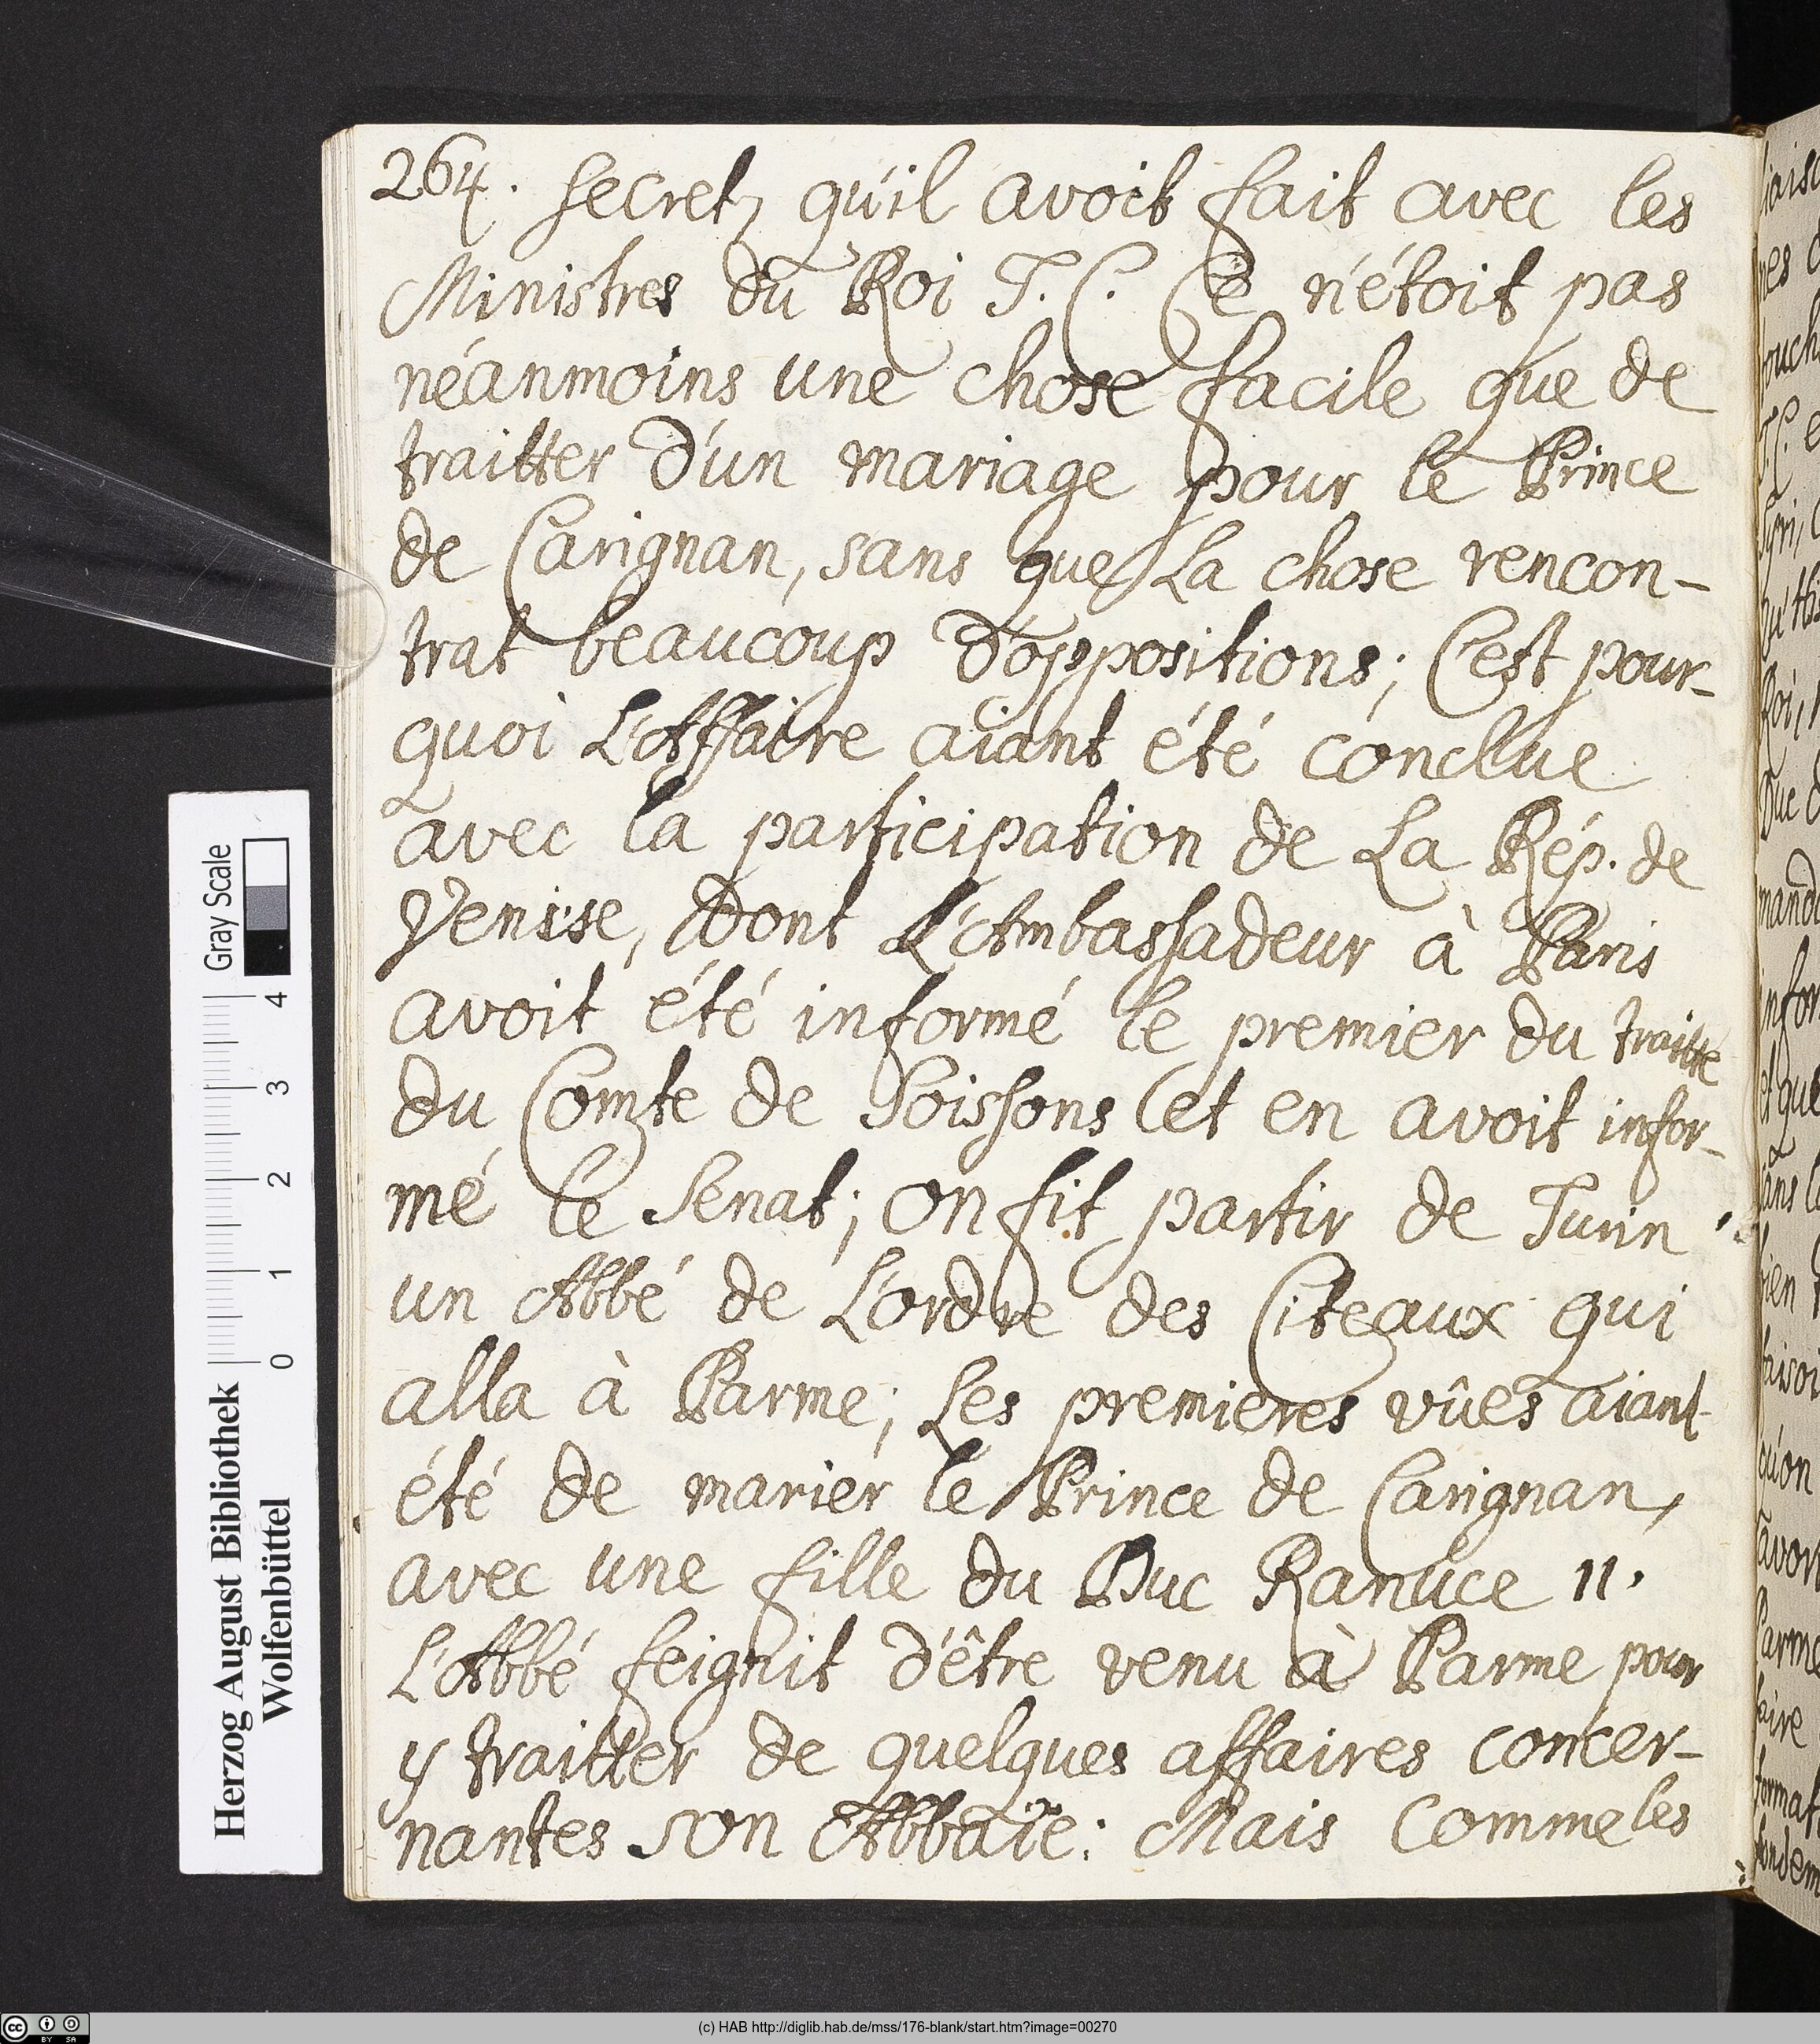 264. secret, qu'il avoit fait avec les
Ministres du Roi T. C. Ce n'étoit pas
néanmoins une chose facile que de
traitter d'un mariage pour le Prince
de Carignan, sans que La chose rencon-
trat beaucoup d'oppositions; C'est pour-
quoi L'Affaire aiant été conclue
avec la participation de La Rép. de
Venise, Dont L'Ambassadeur à Paris
avoit été informé le premier du traitté
du Comte de Soissons et en avoit infor-
mé le Senat; on fit partir de Turin
un Abbé de L'ordre des Citeaux qui
alla à Parme; Les premieres vûes aiant
été de marier le Prince de Carignan,
avec une fille du Duc Ranuce II.
L'Abbé feignit d'être venu à Parme pour
y traitter de quelques affaires concer-
nantes son Abbaïe: Mais Comme les
Gray Scale
4
3
2
1
0
Herzog August Bibliothek
Wolfenbüttel
(c) HAB http://diglib.hab.de/mss/176-blank/start.htm?image=00270
cc BY SA